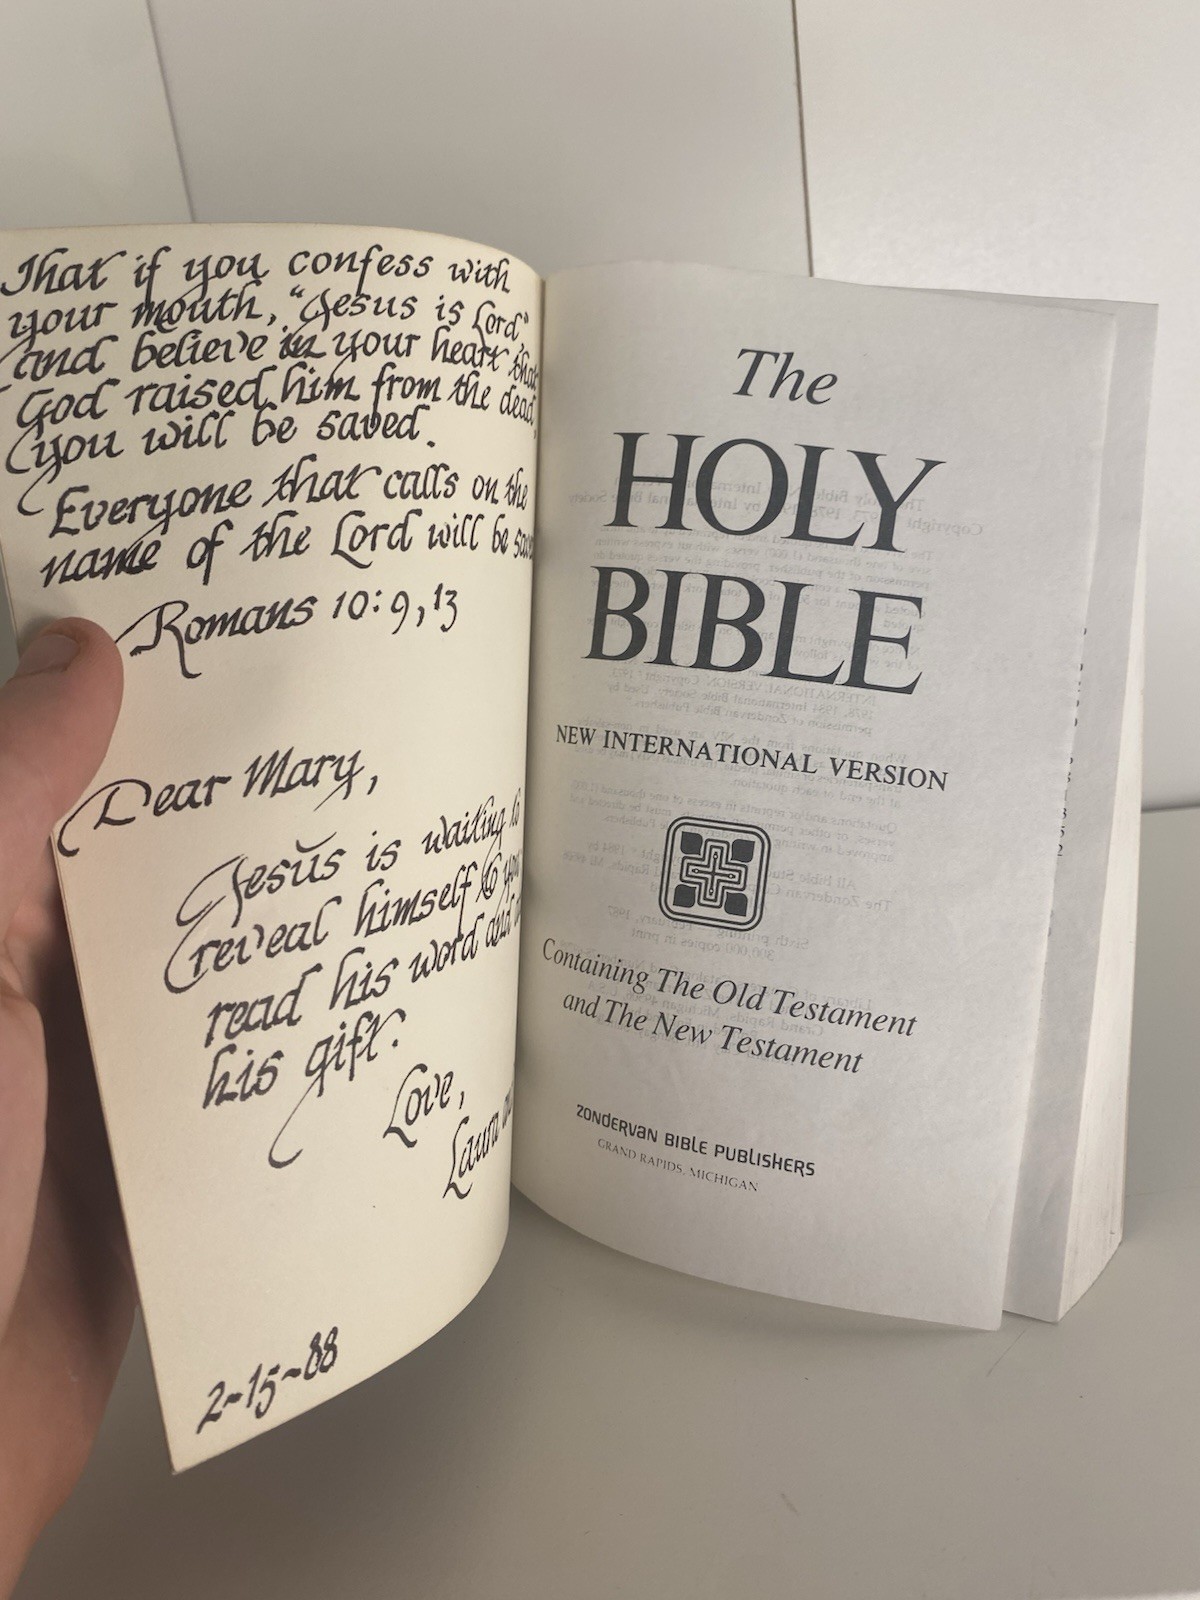 That if you confess with
your mouth, "Jesus is Lord",
and believe in your heart that
God raised him from the dead,
you will be saved.
Everyone that calls on the
name of the Lord will be
Romans 10:9,13
Dear Mary,
Jesus is waiting to
reveal himself to
read his word and
his gift.
Love,
Laura
2-15-88
The
HOLY
BIBLE
NEW INTERNATIONAL VERSION
Containing The Old Testament
and The New Testament
ZONDERVAN BIBLE PUBLISHERS
GRAND RAPIDS, MICHIGAN